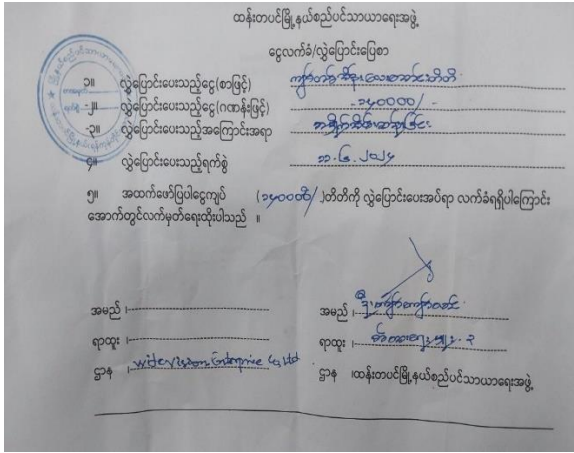 ထန်းတပင်မြို့နယ်စည်ပင်သာယာရေးအဖွဲ့
ငွေလက်ခံ/လွှဲပြောင်းပြေစာ
၁။ လွှဲပြောင်းပေးသည့်ငွေ(စာဖြင့်) ကျပ်တစ်သိန်းလေးသောင်းတိတိ
၂။ လွှဲပြောင်းပေးသည့်ငွေ(ဂဏန်းဖြင့်) ၁၄၀၀၀၀/-
၃။ လွှဲပြောင်းပေးသည့်အကြောင်းအရာ
၄။ လွှဲပြောင်းပေးသည့်ရက်စွဲ ၂၀၂၄
၅။ အထက်ဖော်ပြပါငွေကျပ် (၁၄၀၀၀၀/-)တိတိကို လွှဲပြောင်းပေးအပ်ရာ လက်ခံရရှိပါကြောင်း
အောက်တွင်လက်မှတ်ရေးထိုးပါသည် ။
အမည် ၊ အမည် ၊ ဦးကျော်ကျော်
ရာထူး ၊ ရာထူး ၊
ဌာန ၊ Enterprise Co,Ltd ဌာန ၊ထန်းတပင်မြို့နယ်စည်ပင်သာယာရေးအဖွဲ့